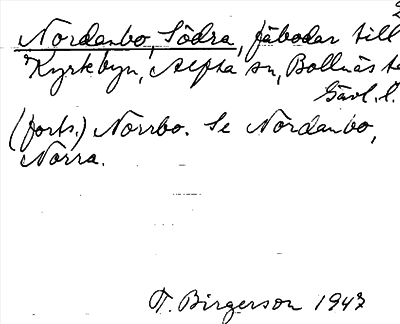 Nordanbo, Södra, fäbodar till
Kyrkbyn, Alfta sn, Bollnäs
Gävl. l.
(forts.) Norrbo. Se Nordanbo,
Norra.
T. Birgerson 1947